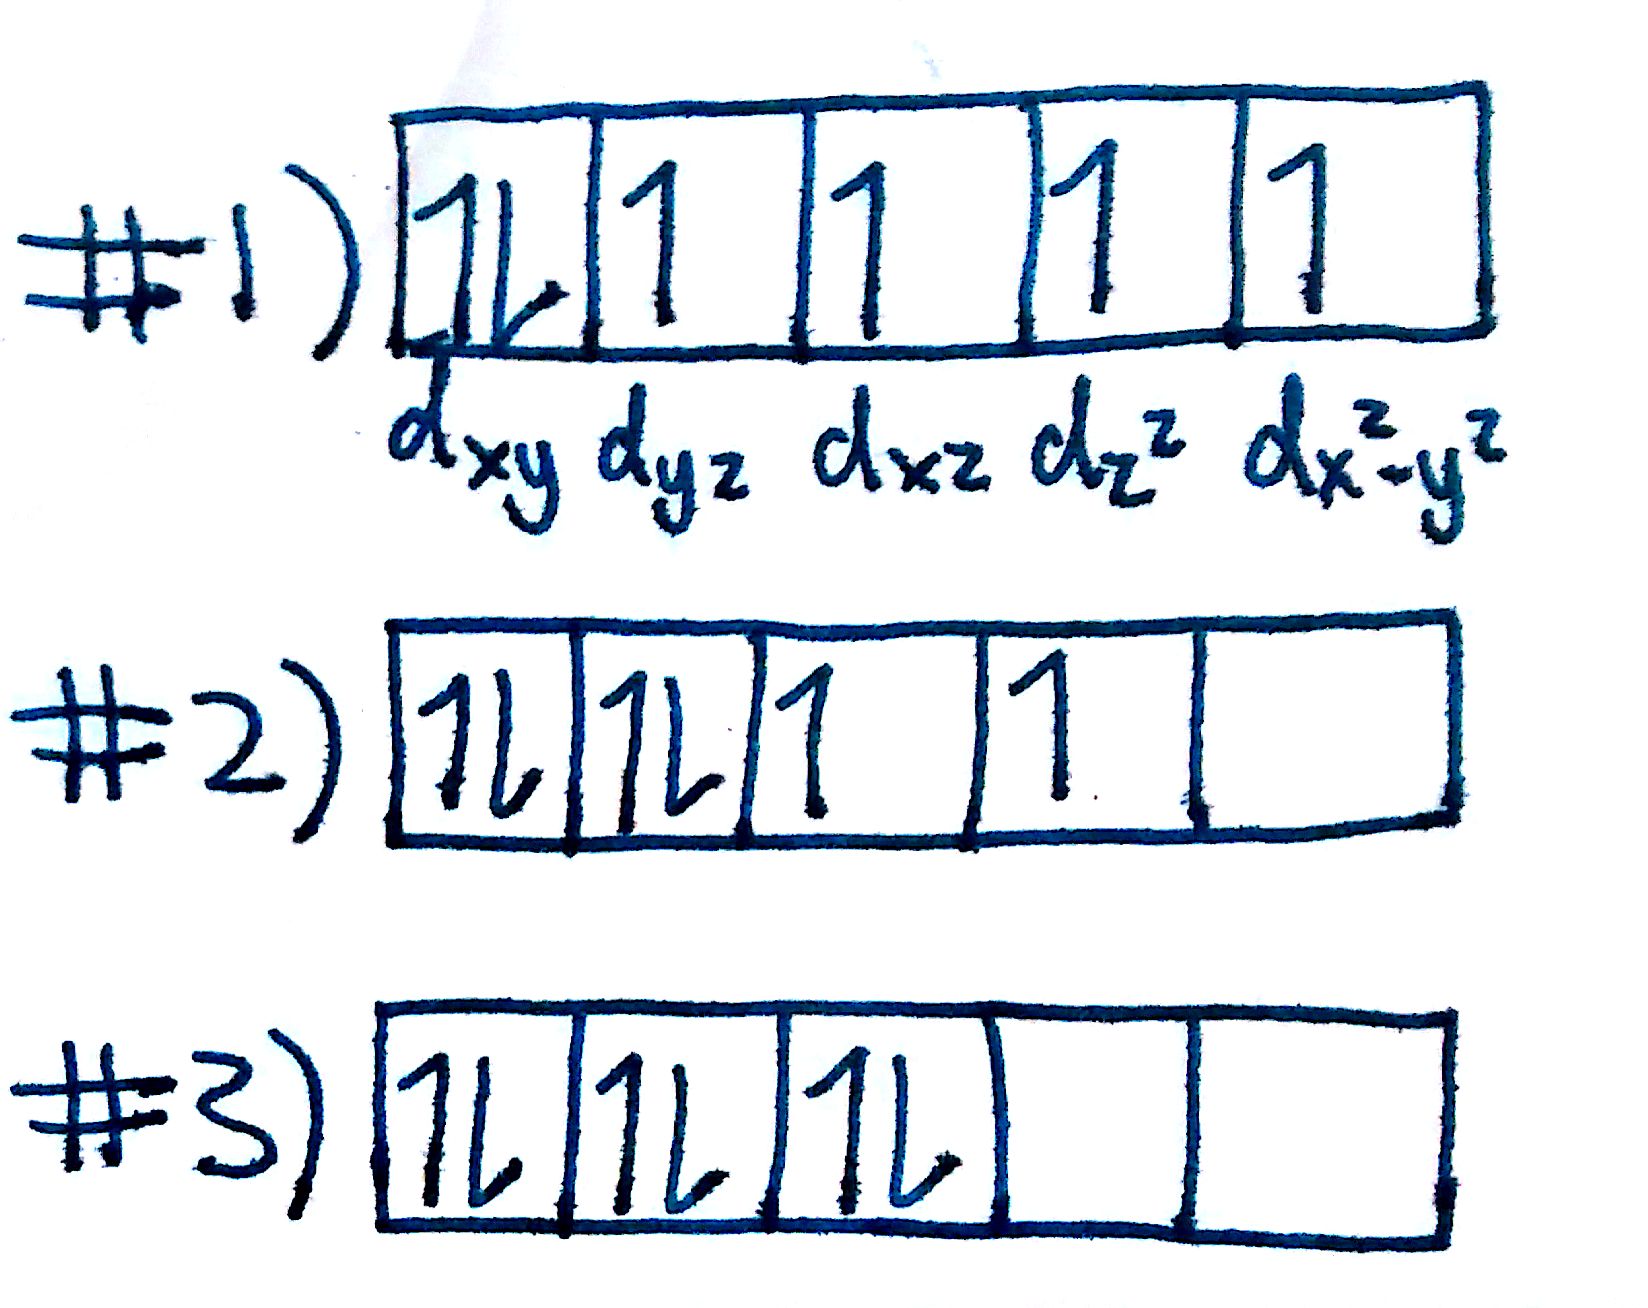 #1) ↿⇂ ↿ ↿ ↿ ↿
dxy dyz dxz dz² dx²-y²
#2) ↿⇂ ↿⇂ ↿ ↿
#3) ↿⇂ ↿⇂ ↿⇂